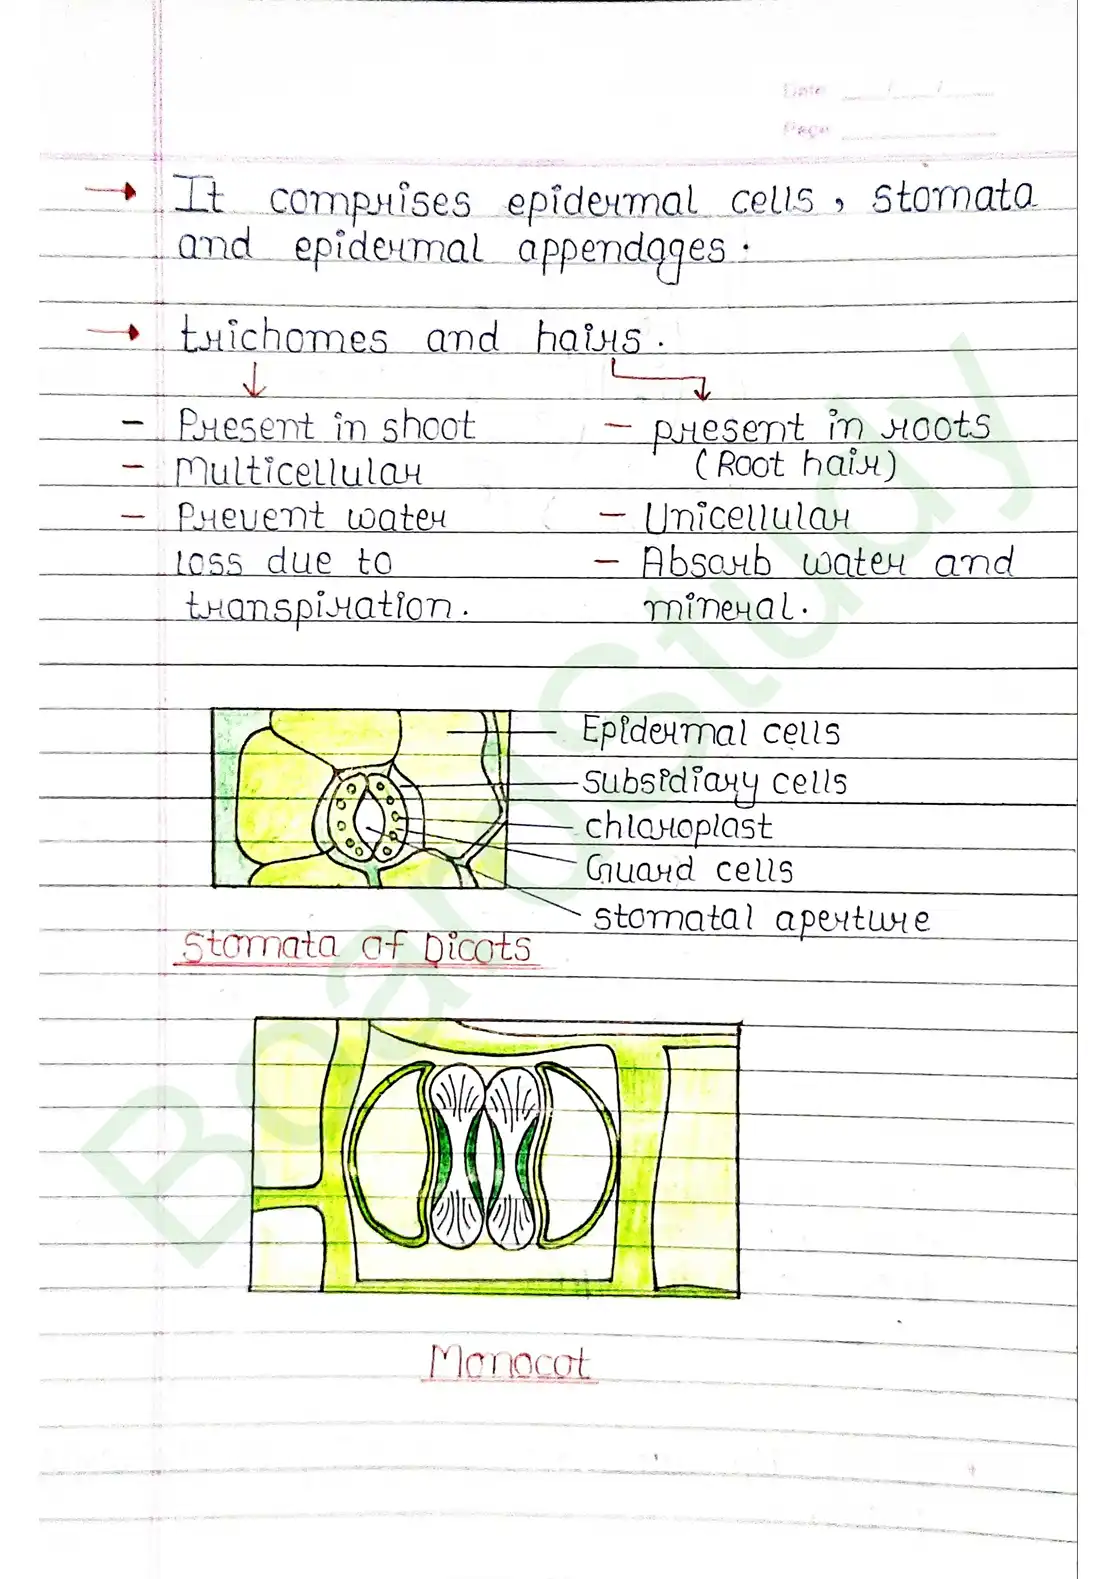 Date ___/___/___
Page
→ It comprises epidermal cells, stomata
and epidermal appendages.
→ trichomes and hairs.
- Present in shoot
- Multicellular
- Prevent water
loss due to
transpiration.
- present in roots
(Root hair)
- Unicellular
- Absorb water and
mineral.
Epidermal cells
Subsidiary cells
chloroplast
Guard cells
stomatal aperture
Stomata of Dicots
Monocot
BoardStudy